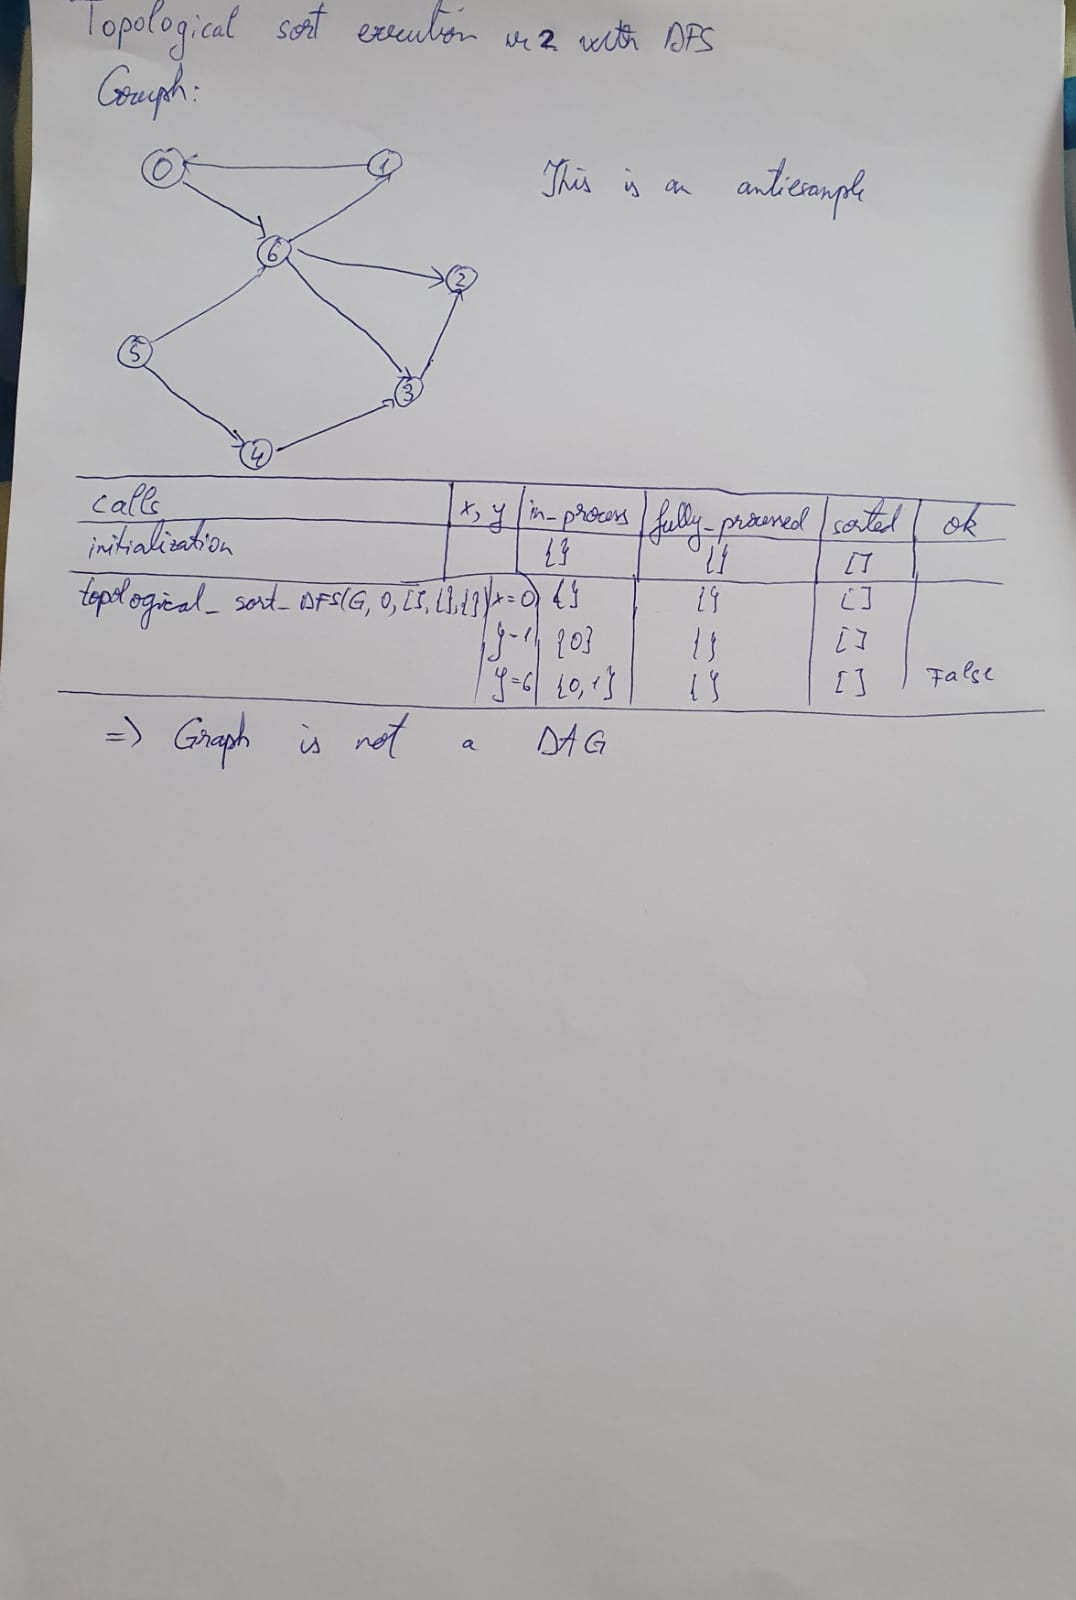 Topological sort execution nr 2 with DFS
Graph:
This is an antiexample
0
1
6
2
5
3
4
calls x, y in_process fully_processed sorted ok
initialization {} {} []
topological_sort_DFS(G, 0, [], {}, {}) x=0 {} {} []
y=1 {0} {} []
y=6 {0,1} {} [] False
=> Graph is not a DAG